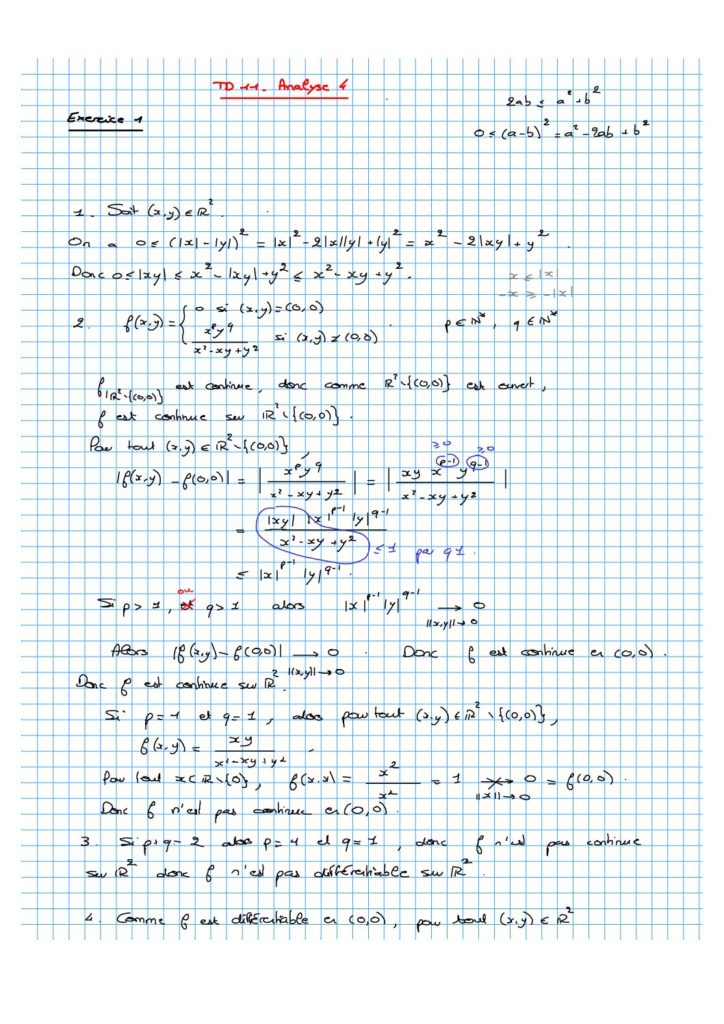 TD 11. Analyse 4
2ab ≤ a² + b²
Exercice 1
0 ≤ (a-b)² = a² - 2ab + b²
1. Soit (x,y) ∈ ℝ².
On a 0 ≤ (|x| - |y|)² = |x|² - 2|x||y| + |y|² = x² - 2|xy| + y².
Donc 0 ≤ |xy| ≤ x² - |xy| + y² ≤ x² - xy + y².
x ≤ |x|
-x ≥ -|x|
2. f(x,y) = { 0 si (x,y) = (0,0)
x^p y^q / (x² - xy + y²) si (x,y) ≠ (0,0)
p ∈ ℕ*, q ∈ ℕ*
f|ℝ²\{(0,0)} est continue, donc comme ℝ²\{(0,0)} est ouvert,
f est continue sur ℝ²\{(0,0)}.
Pour tout (x,y) ∈ ℝ²\{(0,0)},
≥0 ≥0
|f(x,y) - f(0,0)| = | x^p y^q / (x² - xy + y²) | = | xy x^(p-1) y^(q-1) / (x² - xy + y²) |
= |xy| |x|^(p-1) |y|^(q-1) / (x² - xy + y²) ≤ 1 par q1.
≤ |x|^(p-1) |y|^(q-1).
ou
Si p > 1, et q > 1 alors |x|^(p-1) |y|^(q-1) → 0
||x,y|| → 0
Alors |f(x,y) - f(0,0)| → 0. Donc f est continue en (0,0).
||(x,y)|| → 0
Donc f est continue sur ℝ².
Si p = 1 et q = 1, alors pour tout (x,y) ∈ ℝ²\{(0,0)},
f(x,y) = xy / (x² - xy + y²).
Pour tout x ∈ ℝ\{0}, f(x,x) = x² / x² = 1 ↛ 0 = f(0,0).
||x|| → 0
Donc f n'est pas continue en (0,0).
3. Si p+q = 2 alors p = 1 et q = 1, donc f n'est pas continue
sur ℝ² donc f n'est pas différentiable sur ℝ².
4. Comme f est différentiable en (0,0), pour tout (x,y) ∈ ℝ²